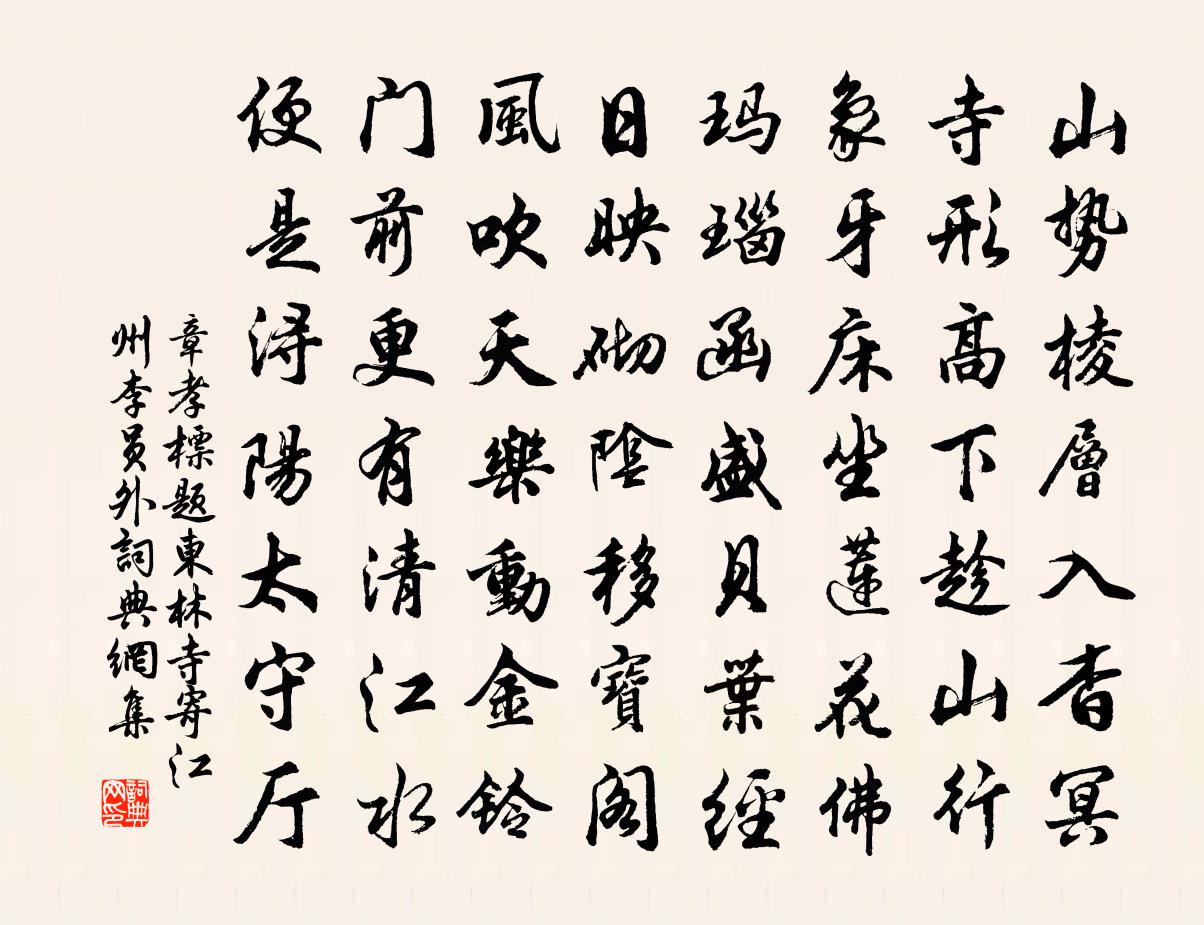 山势棱層入杳冥
寺形高下趁山行
象牙床坐蓮花佛
玛瑙函盛貝葉經
日映砌陰移寶阁
風吹天樂動金鈴
门前更有清江水
便是浔陽太守厅
章孝標题東林寺寄江
州李員外詞典網集
詞典
网印